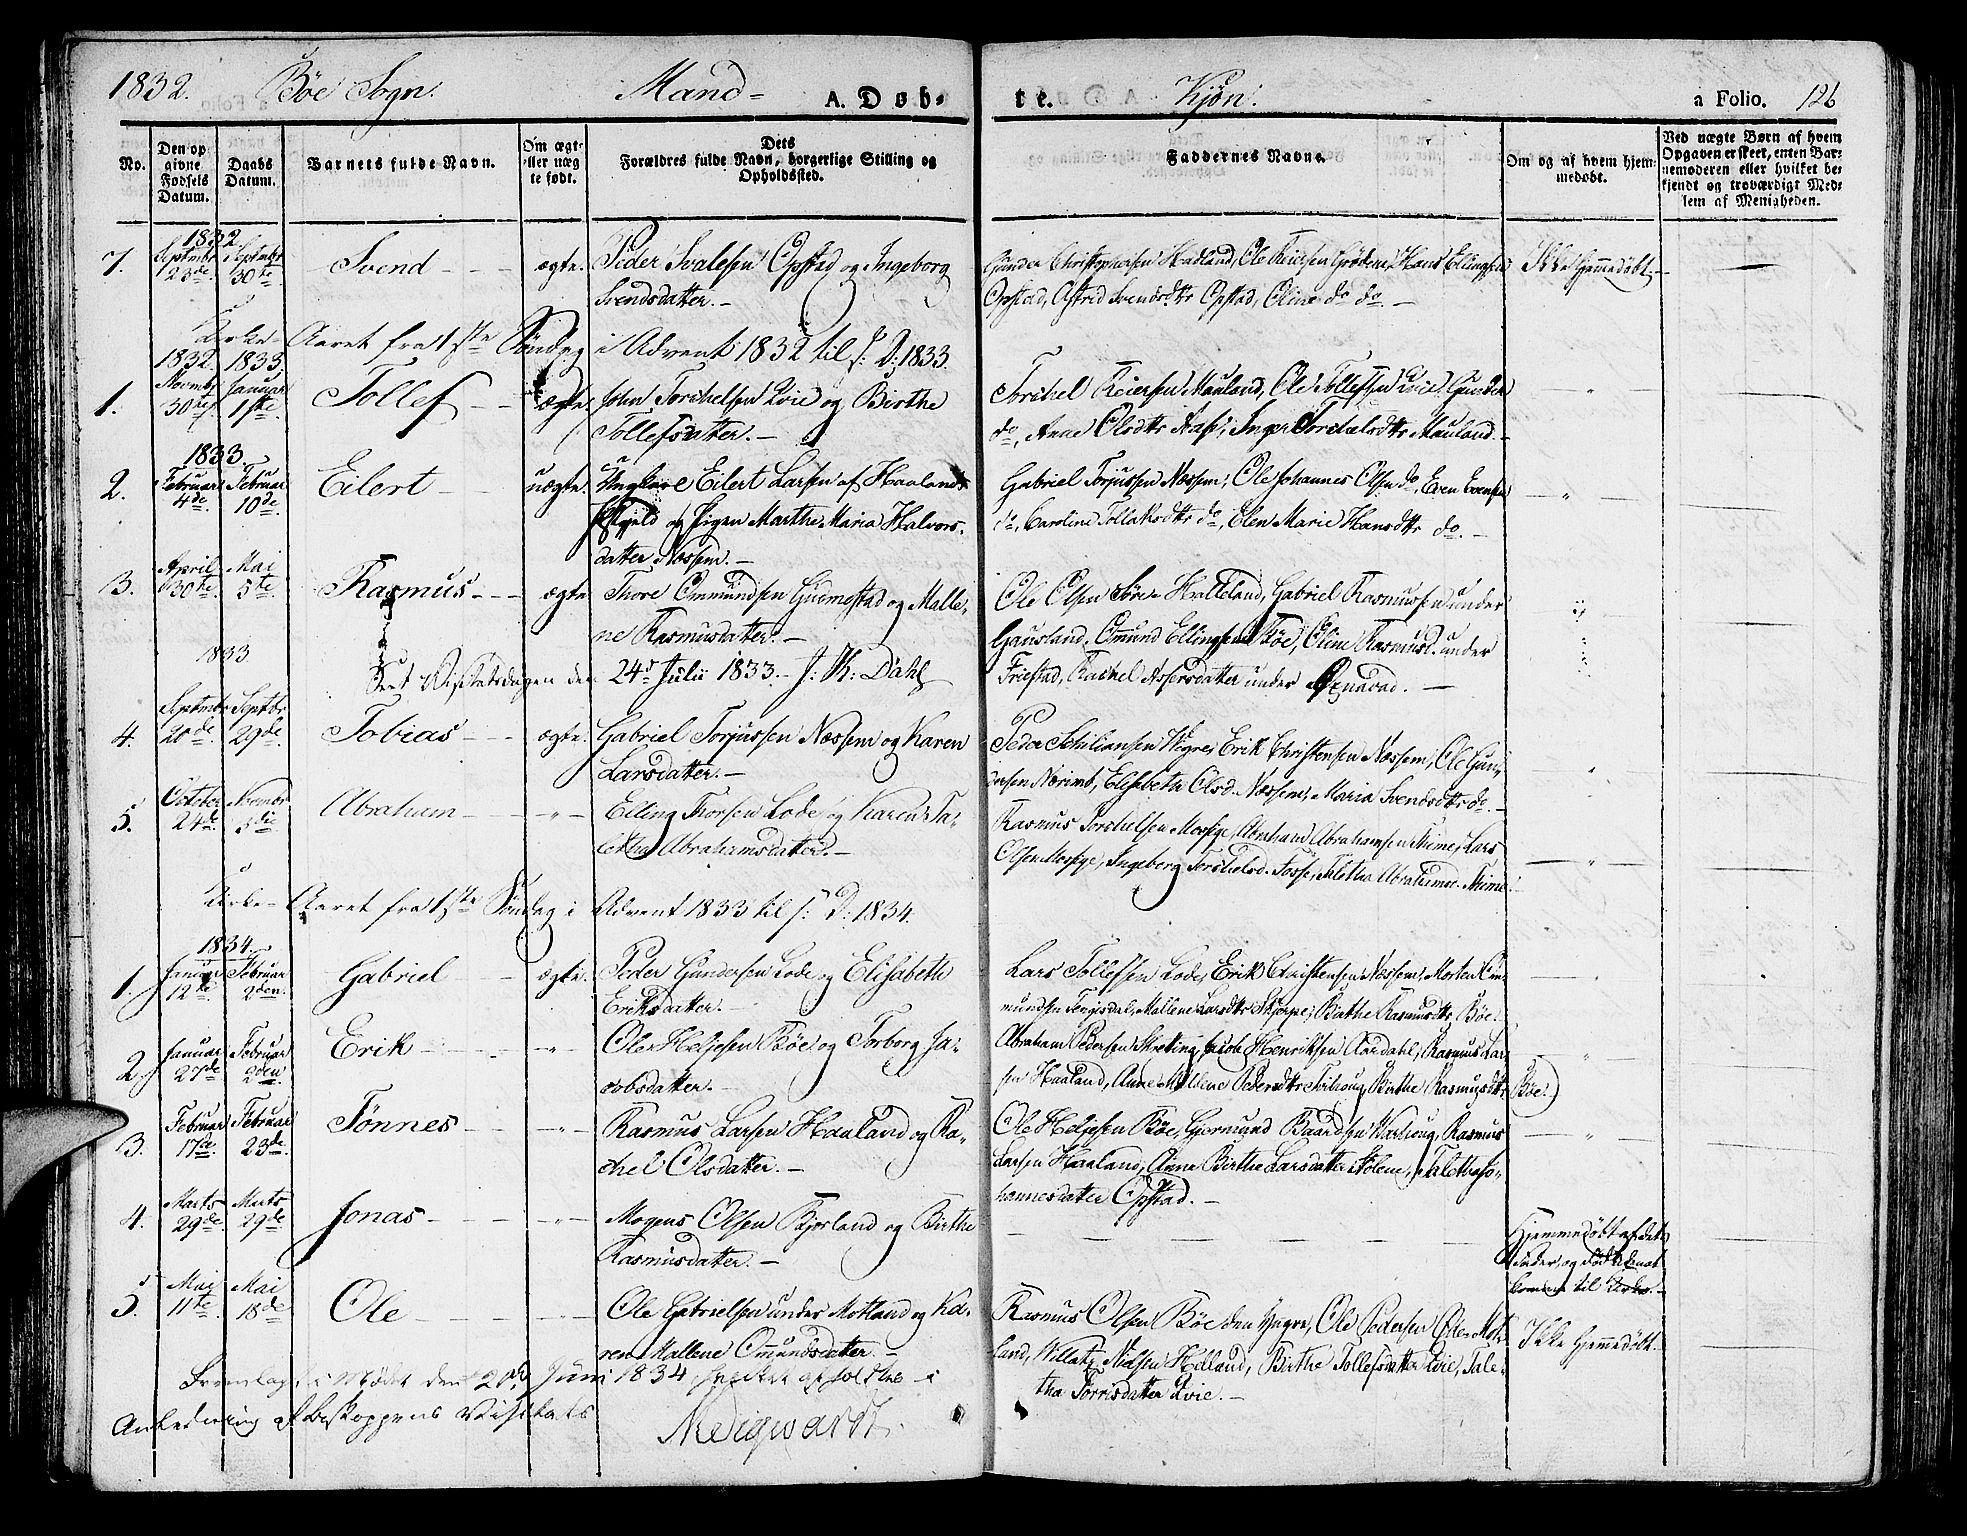 1832. Bøe Sogn. Mand= A. Døb- te. Kjøn. a Folio. 126
No. Den opgivne Fødsels Datum. Daabs Datum. Barnets fulde Navn. Om ægte eller uægte født. Dets Forældres fulde Navn, borgerlige Stilling og Opholdsted. Faddernes Navne. Om og af hvem hjemmedøbt. Ved uægte Børn af hvem Opgaven er skeet, enten Barnemoderen eller hvilket bekjendt og troværdigt Medlem af Menigheden.
1832
7. Septembr 23de Septembr 30te Svend ægte. Peder Svalesen Opstad og Ingeborg
Svendsdatter.
Gunder Christophersen Hadland, Ole Reiersen Grødem, Hans Ellingsen
Opstad, Astrid Svendsdtr Opstad, Oline do do. Ikke Hjemmedøbt
Kirke-Aaret fra 1ste Søndag i Advent 1832 til s: D: 1833.
1832. 1833.
1. Novembr 30te Januar 1ste Tollef ægte. John Torkelsen Qvie og Birthe
Tollefsdatter.
Torkel Reiersen Mauland, Ole Tollefsen Qvie, Gunder
do, Anne Olsdtr Aas, Inger Torkelsdtr Mauland.
1833
2. Februar 4de Februar 10de Eilert uægte. Ungkarl Eilert Larsen af Haalands
Præstgjeld og Pigen Marthe Maria Halvors-
datter Næssem.
Gabriel Torjussen Næssem, Ole Johannes Olsen do, Even Evensen
do, Caroline Tollaksdtr do, Elen Marie Hansdtr do.
3. April 30te Mai 5te Rasmus ægte Thore Ommundsen Gudmestad og Malle-
ne Rasmusdatter.
Ole Olsen Søre Halleland, Gabriel Rasmussen under
Gausland, Omund Ellingsen Bøe, Oline Rasmusd. under
Friestad, Rachel Assersdatter under
1833
Seet Visitatsdagen den 24d Julii 1833. J: K: Dahl
4. Septembr 20de Septbr 29de Tobias ægte. Gabriel Torjussen Næssem og Karen
Larsdatter.
Peder Schiliansen Vigre, Erik Christensen Næssem, Ole Gun-
dersen Nærimb, Elisabeth Olsd. Næssem, Maria Svendsdtr do.
5. October 24de Novembr 3die Abraham Elling Thorsen Lode og Karen Ta-
letha Abrahamsdatter.
Rasmus Torkelsen Mossige, Abraham Abrahamsen Thime, Lars
Olsen Mossige, Ingeborg Torkelsd. Fosse, Taletha Abrahamsd. Thime.
Kirke-Aaret fra 1ste Søndag i Advent 1833 til s: D: 1834.
1834.
1. Januar 12te Februar 2den Gabriel ægte. Peder Gundersen Lode og Elisabeth
Eriksdatter.
Lars Tollefsen Lode, Erik Christensen Næssem, Morten Om-
mundsen Tengisdal, Mallene Larsdtr Skjerpe, Birthe Rasmusdtr Bøe.
2. Januar 27de Februar 2den Erik Ole Heljesen Bøe og Torborg Ja-
cobsdatter.
Abraham Pedersen Skreting, Jacob Henriksen Aardahl, Rasmus Lar-
sen Haaland, Anne Malene Pedersdtr Torhoug, Birthe Rasmusdtr Bøe.
3. Februar 17de Februar 23de Tønnes Rasmus Larsen Haaland og Ra-
chel Olsdatter.
Ole Heljesen Bøe, Gjermund Baardsen Varhoug, Rasmus
Larsen Haaland, Anne Birthe Larsdatter Stølene, Taletha Jo-
hannesdatter Opstad.
4. Marts 29de Marts 29de Jonas Mogens Olsen Bjorland og Birthe
Rasmusdatter.
Hjemmedøbt af dets
Fader, og død inden at
komme til Kirke.
5. Mai 11te Mai 18de Ole Ole Gabrielsen under Motland og Ka-
ren Mallene Omundsdatter.
Rasmus Olsen Bøe den Yngre, Ole Pedersen Øde-Mot-
land, Villatz Nielsen Hølland, Birthe Tollefsdatter Qvie, Tale-
tha Torrisdatter Qvie. Ikke Hjemmedøbt.
Fremlagt i Mødet den 2d Juni 1834 i
Anledning af biskoppens Visitats